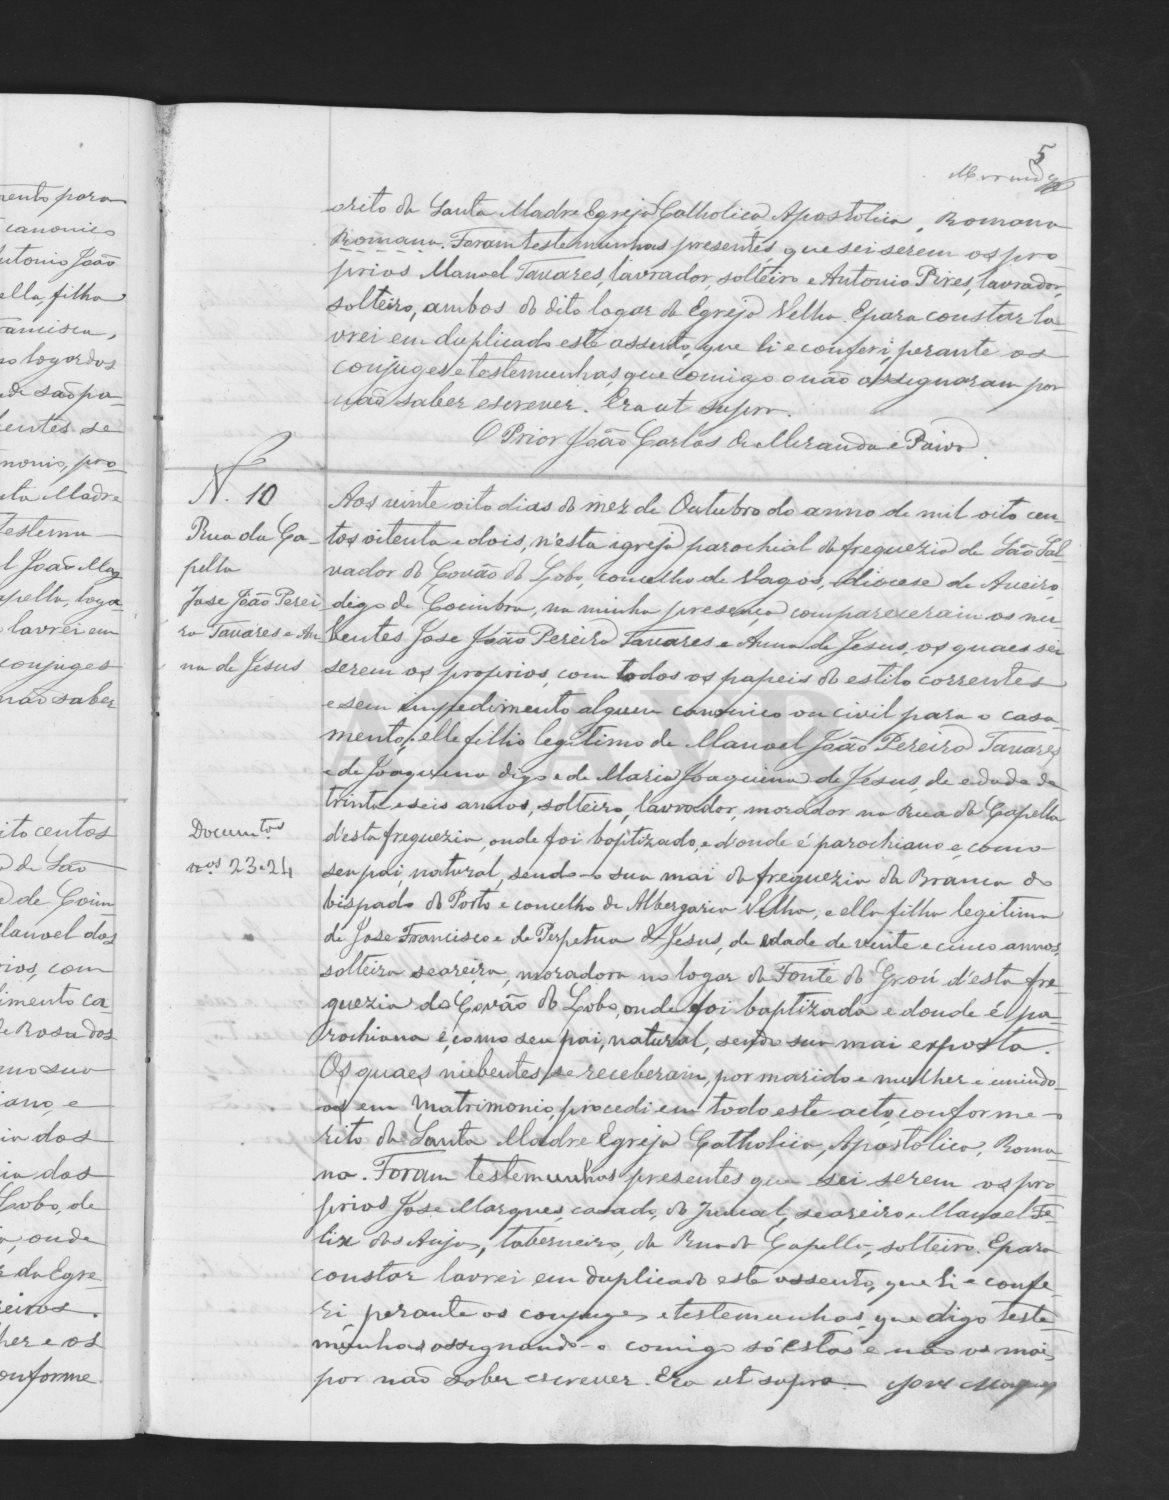 5
Miranda
o rito da Santa Madre Egreja Catholica, Apostolica, Romana
Romana. Foram testemunhas presentes, que sei serem os pro-
prios Manoel Tavares, lavrador, solteiro e Antonio Pires, lavrador,
solteiro, ambos do dito logar da Egreja Velha. E para constar la-
vrei em duplicado este assento, que li e conferi, perante os
conjuges e testemunhas, que comigo o não assignaram por
não saber escrever. Era ut supra.
O Prior João Carlos de Miranda e Paiva.
N. 10
Rua da Ca-
pella
Jose João Perei
ra Tavares e An
na de Jesus
Documtos
nos 23 e 24
Aos vinte oito dias do mez de Outubro do anno de mil oito cen-
tos oitenta e dois, n'esta igreja parochial da freguezia de São Sal-
vador do Covão do Lobo, concelho de Vagos, diocese de Aveiro,
digo de Coimbra, na minha presença compareceram os nu-
bentes Jose João Pereira Tavares e Anna de Jesus, os quaes sei
serem os proprios, com todos os papeis do estilo correntes
e sem impedimento algum canonico ou civil para o casa-
mento; elle filho legitimo de Manoel João Pereira Tavares
e de Joaquina digo e de Maria Joaquina de Jesus, de edade de
trinta e seis annos, solteiro, lavrador, morador na Rua da Capella
d'esta freguezia, onde foi baptizado, e d'onde é parochiano e, como
seu pai, natural, sendo-o sua mai da freguezia da Branca do
bispado do Porto e concelho de Albergaria Velha, e ella filha legitima
de Jose Francisco e de Perpetua de Jesus, de edade de vinte e cinco annos,
solteira seareira, moradora no logar da Fonte do Grou d'esta fre-
guezia do Covão do Lobo, onde foi baptizada e donde é pa-
rochiana e, como seu pai, natural, sendo sua mai exposta.
Os quaes nubentes se receberam, por marido e mulher e unindo-
os em Matrimonio, procedi em todo este acto, conforme o
rito da Santa Madre Egreja Catholica, Apostolica, Roma-
na. Foram testemunhas presentes que sei serem os pro
prios Jose Marques, casado, do Juncal, seareiro e Manoel Fe-
lix dos Anjos, taberneiro, da Rua da Capella, solteiro. E para
constar lavrei em duplicado este assento, que li e confe-
ri, perante os conjuges e testemunhas, que digo teste-
munhas assignando-o comigo só estas e não os mais
por não saber escrever. Era ut supra. Jose Marques
mento para
canonico
Antonio João
ella, filha
Francisca,
no logar dos
de são pa-
bentes se
monio, pro-
nta Madre
Testemu-
l João
apella, loga
lavrei em
conjuges
não saber
oito centos
de São
de Coim
Manoel dos
rios, com
dimento ca-
de Rosa dos
mo sua
iano, e
ia dos
ia dos
Lobo, de
onde
r da Egre
reiros.
her e os
onforme